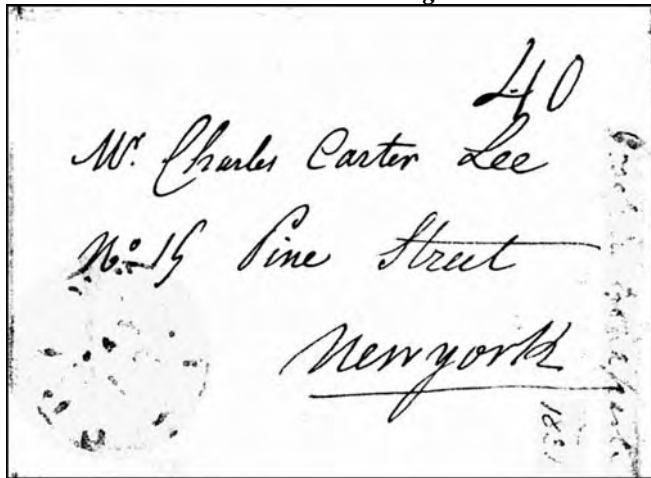 40
Mr. Charles Carter Lee
No. 15 Pine Street
Newyork